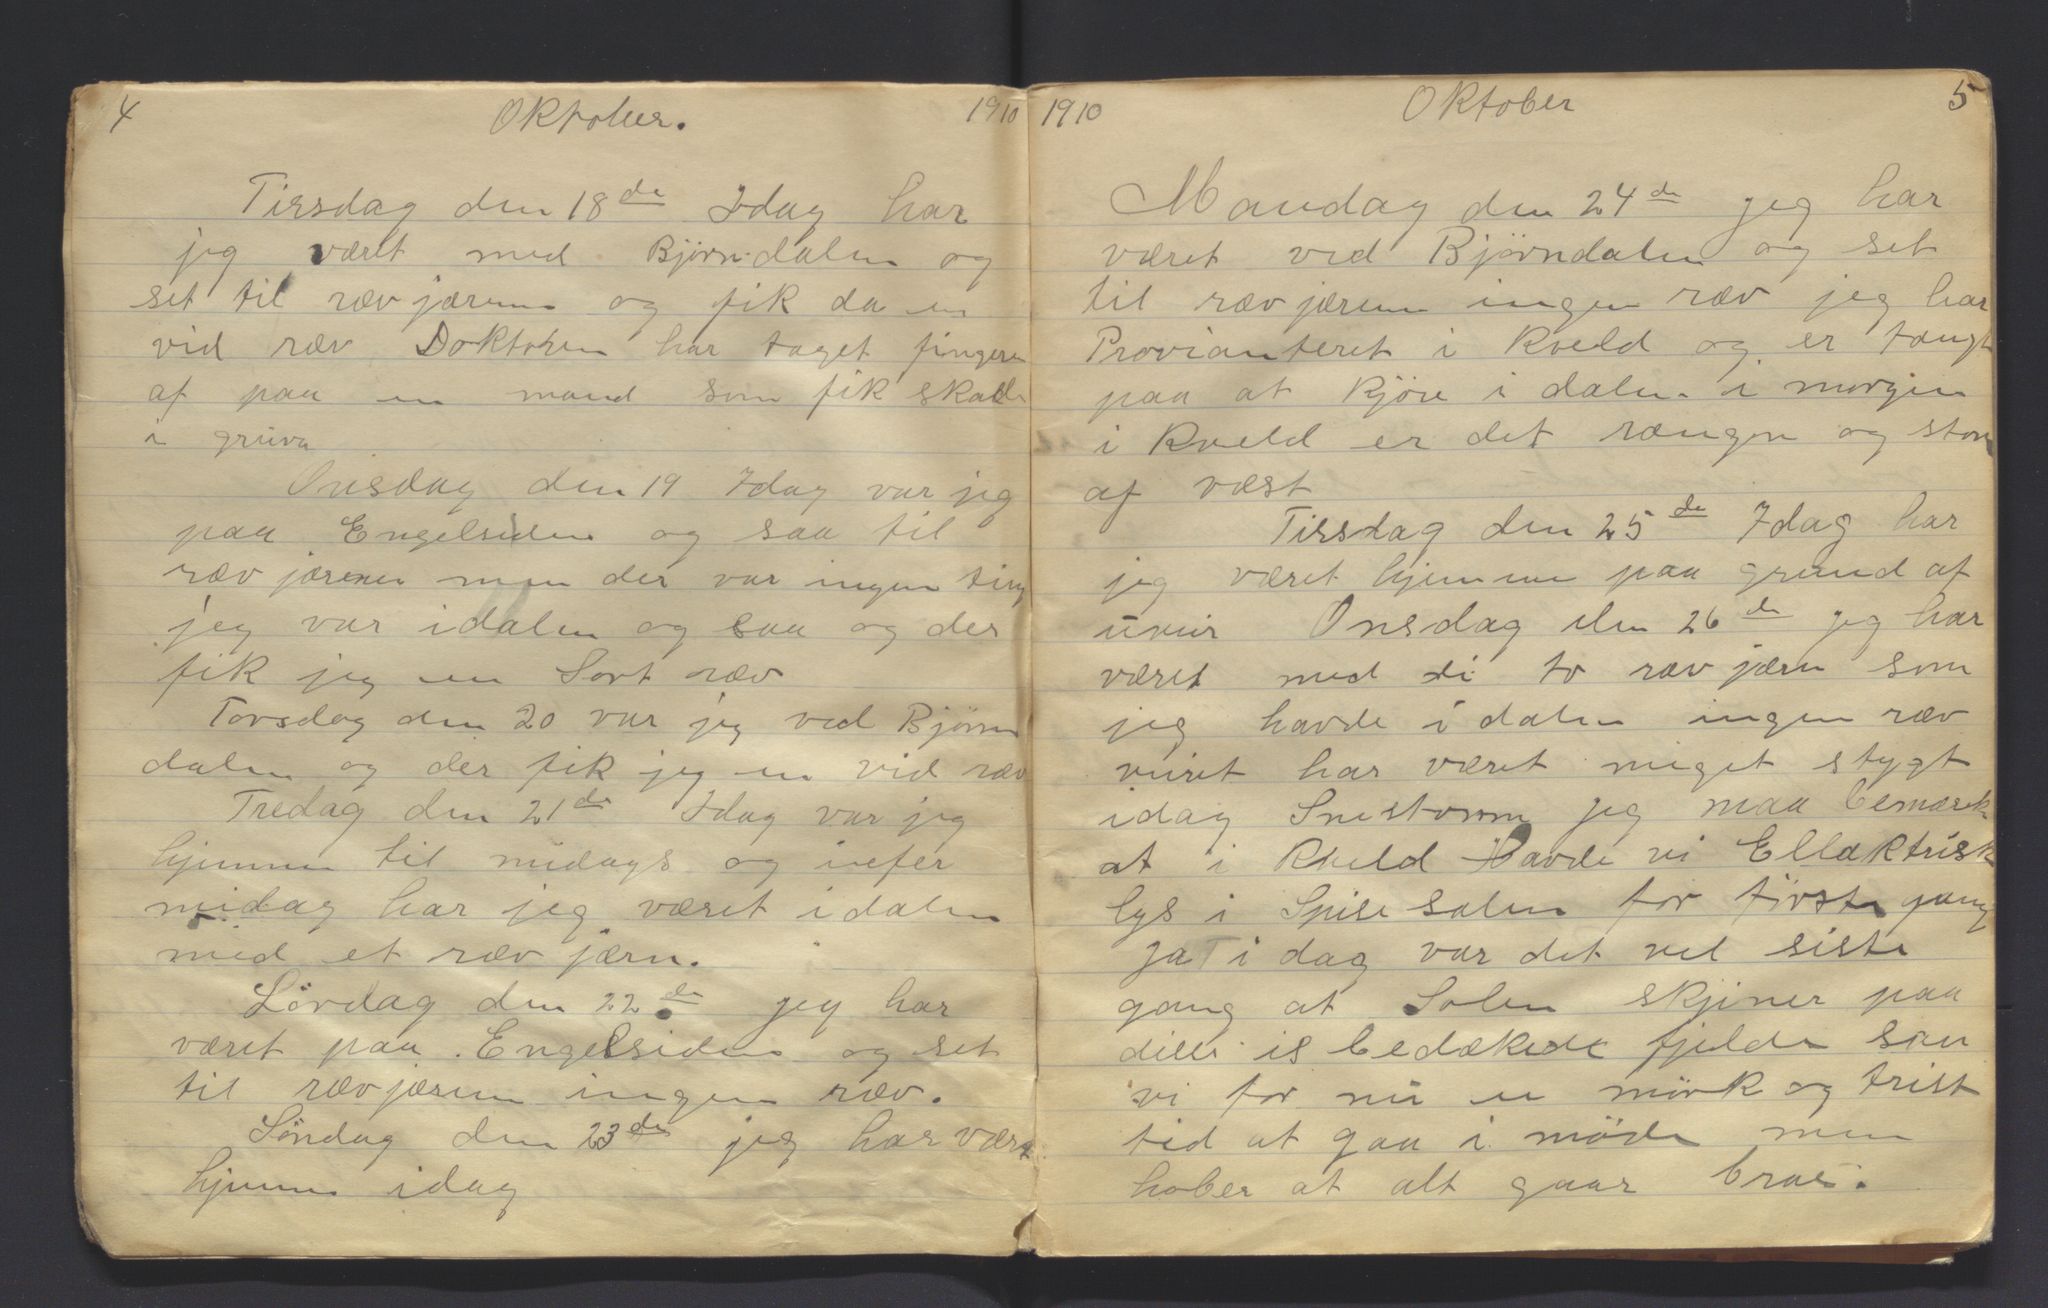 4 Oktober. 1910
Tirsdag den 18de Idag har
jeg været med Bjørndalen og
set til ræv jærene og fik da en
vid ræv Doktoren har taget fingeren
af paa en mand som fik skade
i gruva
Onsdag den 19 Idag var jeg
paa Engelsiden og saa til
ræv jærener men der var ingen ting
jeg var idalen og saa og der
fik jeg en Sort ræv
Torsdag den 20 var jeg ved Bjørn
dalen og der fik jeg en vid ræv
Fredag den 21de Idag var jeg
hjemme til midags og
midag har jeg været idalen
med et ræv jærn.
Lördag den 22de jeg har
været paa Engelsiden og set
til rævjærene ingen ræv.
Söndag den 23de jeg har været
hjemme idag
1910 Oktober 5
Mandag den 24de jeg har
været ved Bjørndalen og set
til ræv jærene ingen ræv jeg har
Provianteret i kveld og er tængt
paa at kjøre i dalen i morgen
i kveld er det rængn og storm
af væst
Tirsdag den 25de Idag har
jeg været hjemme paa grund af
uveir Onsdag den 26de jeg har
været med di to ræv jærn som
jeg havde i dalen ingen ræv
veiret har været meget stygt
idag Snestorm jeg maa bemærke
at i kveld Havde vi Ellæktrisk
lys i Spise salen for förste gang
Ja i dag var det vel siste
gang at Solen skjiner paa
disse is bedækede fjelde saa
vi for nu en mörk og trist
tid at gaa i möde men
hober at alt gaar bra.